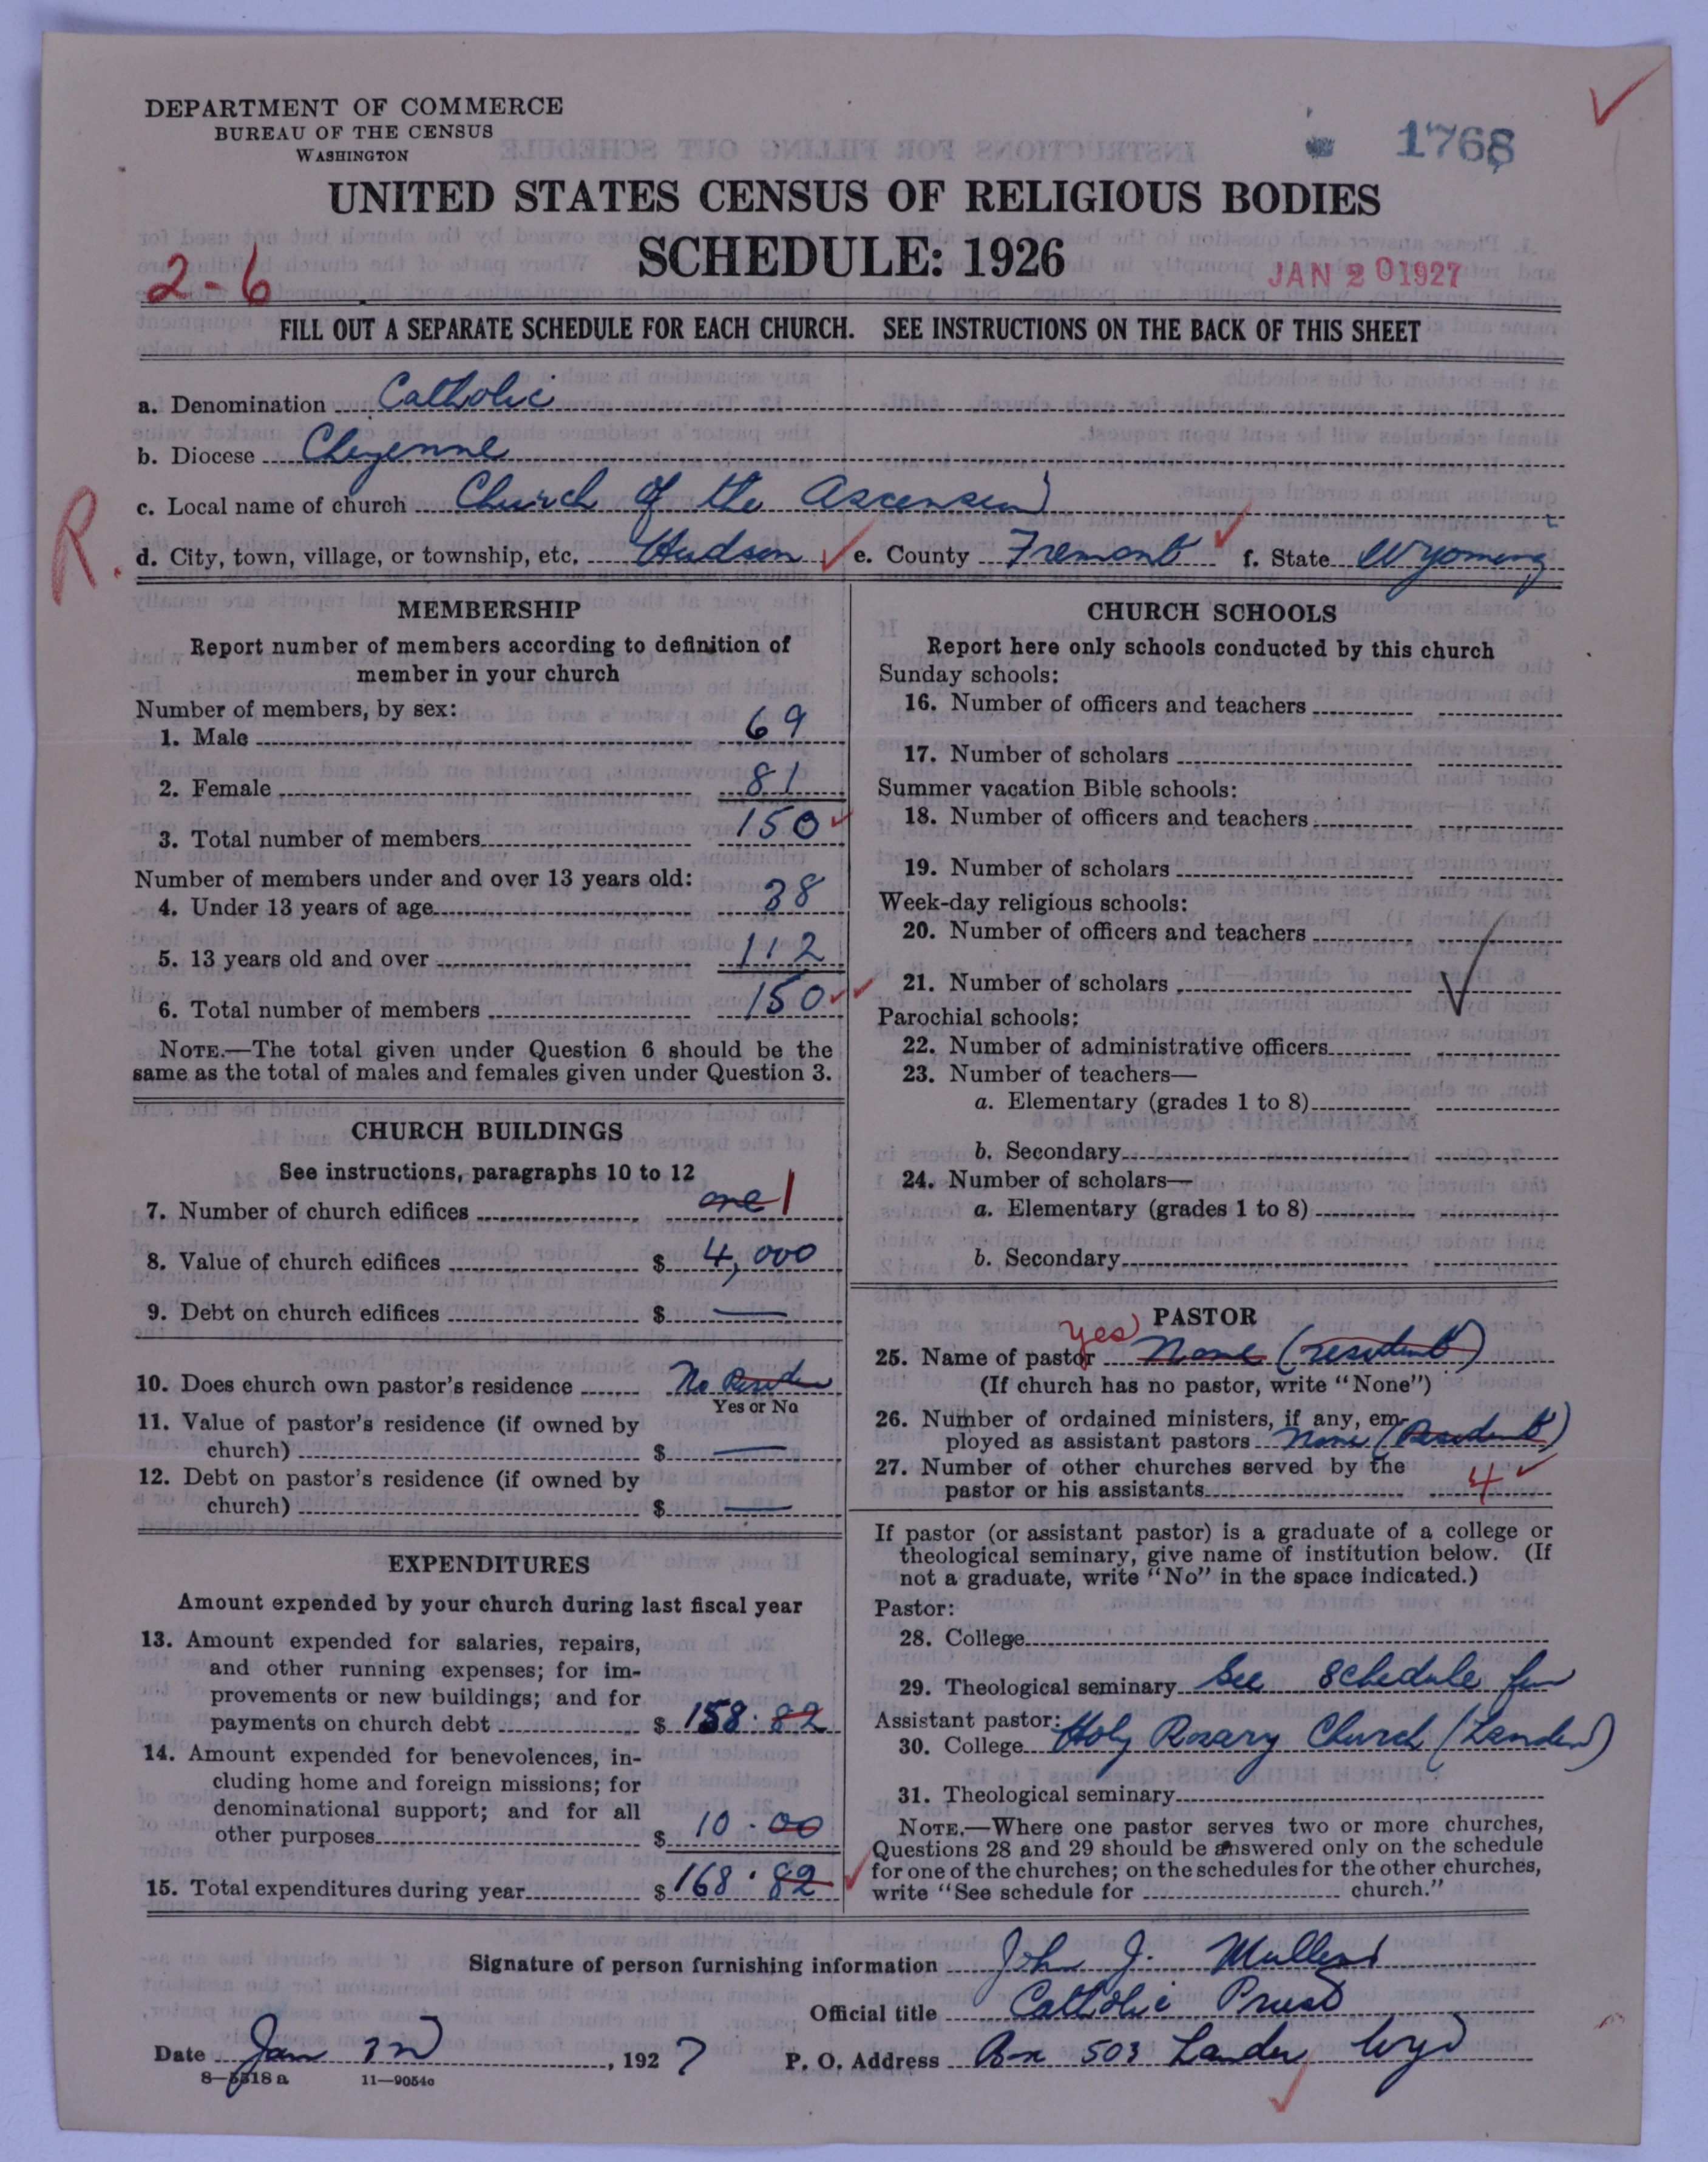 DEPARTMENT OF COMMERCE
BUREAU OF THE CENSUS
WASHINGTON
1768
UNITED STATES CENSUS OF RELIGIOUS BODIES
SCHEDULE: 1926
2-6
JAN 20 1927
FILL OUT A SEPARATE SCHEDULE FOR EACH CHURCH. SEE INSTRUCTIONS ON THE BACK OF THIS SHEET
a. Denomination Catholic
b. Diocese Cheyenne
c. Local name of church Church of the Ascension
R.
d. City, town, village, or township, etc. Hudson e. County Fremont f. State Wyoming
MEMBERSHIP
Report number of members according to definition of
member in your church
Number of members, by sex:
1. Male 69
2. Female 81
3. Total number of members 150
Number of members under and over 13 years old:
4. Under 13 years of age 38
5. 13 years old and over 112
6. Total number of members 150
NOTE.—The total given under Question 6 should be the
same as the total of males and females given under Question 3.
CHURCH BUILDINGS
See instructions, paragraphs 10 to 12
7. Number of church edifices one 1
8. Value of church edifices $ 4,000
9. Debt on church edifices $ —
10. Does church own pastor's residence No
Yes or No
11. Value of pastor's residence (if owned by
church) $ —
12. Debt on pastor's residence (if owned by
church) $ —
EXPENDITURES
Amount expended by your church during last fiscal year
13. Amount expended for salaries, repairs,
and other running expenses; for im-
provements or new buildings; and for
payments on church debt $ 158.82
14. Amount expended for benevolences, in-
cluding home and foreign missions; for
denominational support; and for all
other purposes $ 10.00
15. Total expenditures during year $ 168.82
CHURCH SCHOOLS
Report here only schools conducted by this church
Sunday schools:
16. Number of officers and teachers
17. Number of scholars
Summer vacation Bible schools:
18. Number of officers and teachers
19. Number of scholars
Week-day religious schools:
20. Number of officers and teachers
21. Number of scholars
Parochial schools:
22. Number of administrative officers
23. Number of teachers—
a. Elementary (grades 1 to 8)
b. Secondary
24. Number of scholars—
a. Elementary (grades 1 to 8)
b. Secondary
PASTOR
yes
25. Name of pastor None (resident)
(If church has no pastor, write "None")
26. Number of ordained ministers, if any, em-
ployed as assistant pastors None (Resident)
27. Number of other churches served by the
pastor or his assistants 4
If pastor (or assistant pastor) is a graduate of a college or
theological seminary, give name of institution below. (If
not a graduate, write "No" in the space indicated.)
Pastor:
28. College
29. Theological seminary See Schedule for
Assistant pastor:
30. College Holy Rosary Church (Lander)
31. Theological seminary
NOTE.—Where one pastor serves two or more churches,
Questions 28 and 29 should be answered only on the schedule
for one of the churches; on the schedules for the other churches,
write "See schedule for church."
Signature of person furnishing information John J. Mullen
Official title Catholic Priest
Date Jan 3rd, 1927 P. O. Address Box 503 Lander Wyo
8—5518 a 11—9054c